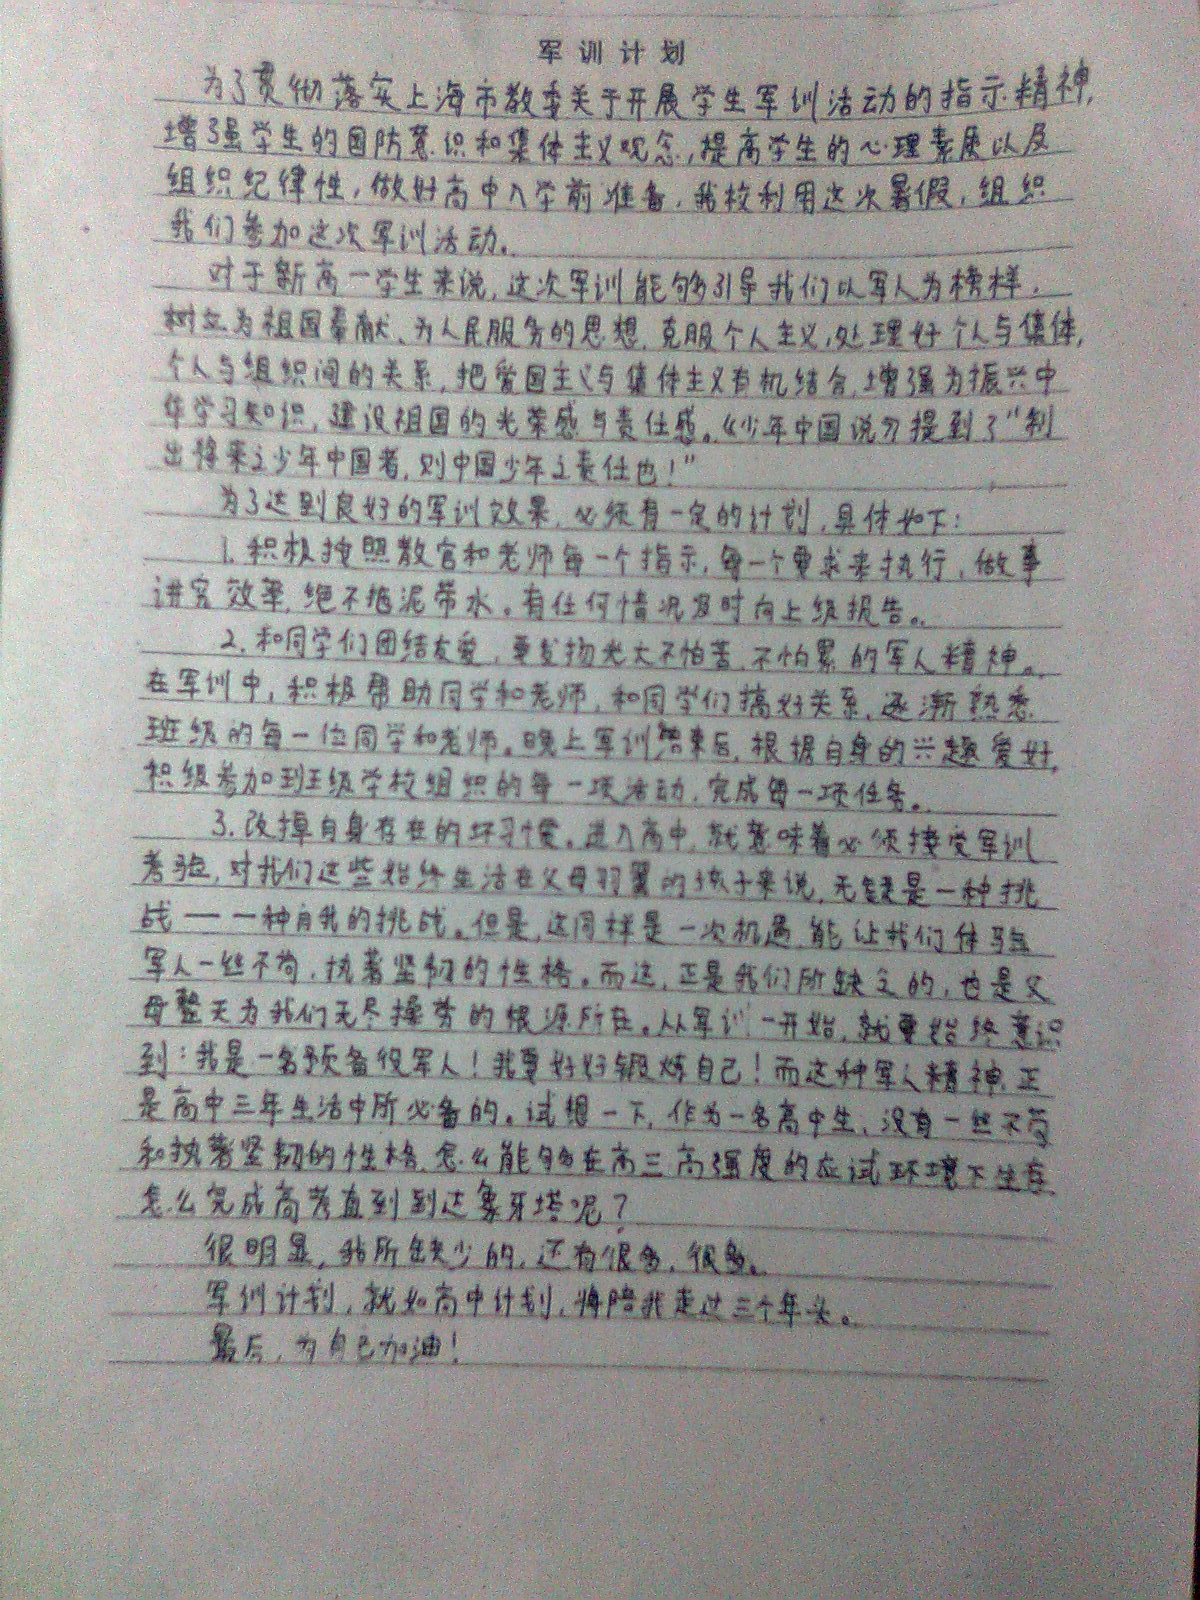 军训计划
为了贯彻落实上海市教委关于开展学生军训活动的指示精神,
增强学生的国防意识和集体主义观念,提高学生的心理素质以及
组织纪律性,做好高中入学前准备,我校利用这次暑假,组织
我们参加这次军训活动。
对于新高一学生来说,这次军训能够引导我们以军人为榜样,
树立为祖国奉献、为人民服务的思想,克服个人主义,处理好个人与集体,
个人与组织间的关系,把爱国主义与集体主义有机结合,增强为振兴中
华学习知识,建设祖国的光荣感与责任感。《少年中国说》提到了“制
出将来之少年中国者,则中国少年之责任也!”
为了达到良好的军训效果,必须有一定的计划,具体如下:
1.积极按照教官和老师每一个指示,每一个要求来执行,做事
讲究效率,绝不拖泥带水。有任何情况及时向上级报告。
2.和同学们团结友爱,要发扬光大不怕苦、不怕累的军人精神。
在军训中,积极帮助同学和老师,和同学们搞好关系,逐渐熟悉
班级的每一位同学和老师。晚上军训结束后,根据自身的兴趣爱好,
积级参加到班级学校组织的每一项活动,完成每一项任务。
3.改掉自身存在的坏习惯。进入高中,就意味着必须接受军训
考验,对我们这些始终生活在父母羽翼的孩子来说,无疑是一种挑
战——一种自我的挑战。但是,这同样是一次机遇,能让我们体验
军人一丝不苟,执著坚韧的性格。而这,正是我们所缺乏的,也是父
母整天为我们无尽操劳的根源所在。从军训一开始,就要始终意识
到:我是一名预备役军人!我要好好锻炼自己!而这种军人精神,正
是高中三年生活中所必备的。试想一下,作为一名高中生,没有一丝不苟
和执著坚韧的性格,怎么能够在高三高强度的应试环境下生存
怎么完成高考直到到达象牙塔呢?
很明显,我所缺少的,还有很多,很多。
军训计划,就如高中计划,将陪我走过三个年头。
最后,为自己加油!